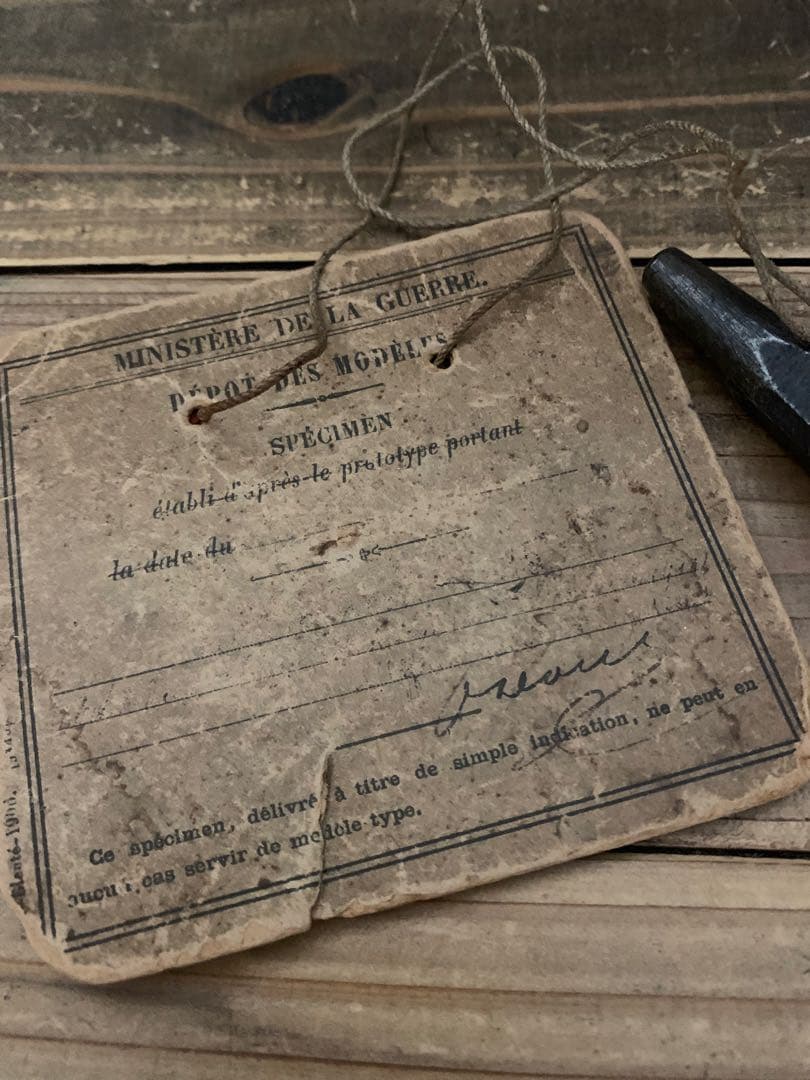 MINISTÈRE DE LA GUERRE.
DÉPOT DES MODÈLES
SPÉCIMEN
établi d'après le prototype portant
la date du
Ce spécimen, délivré à titre de simple indication, ne peut en
aucun cas servir de modèle-type.